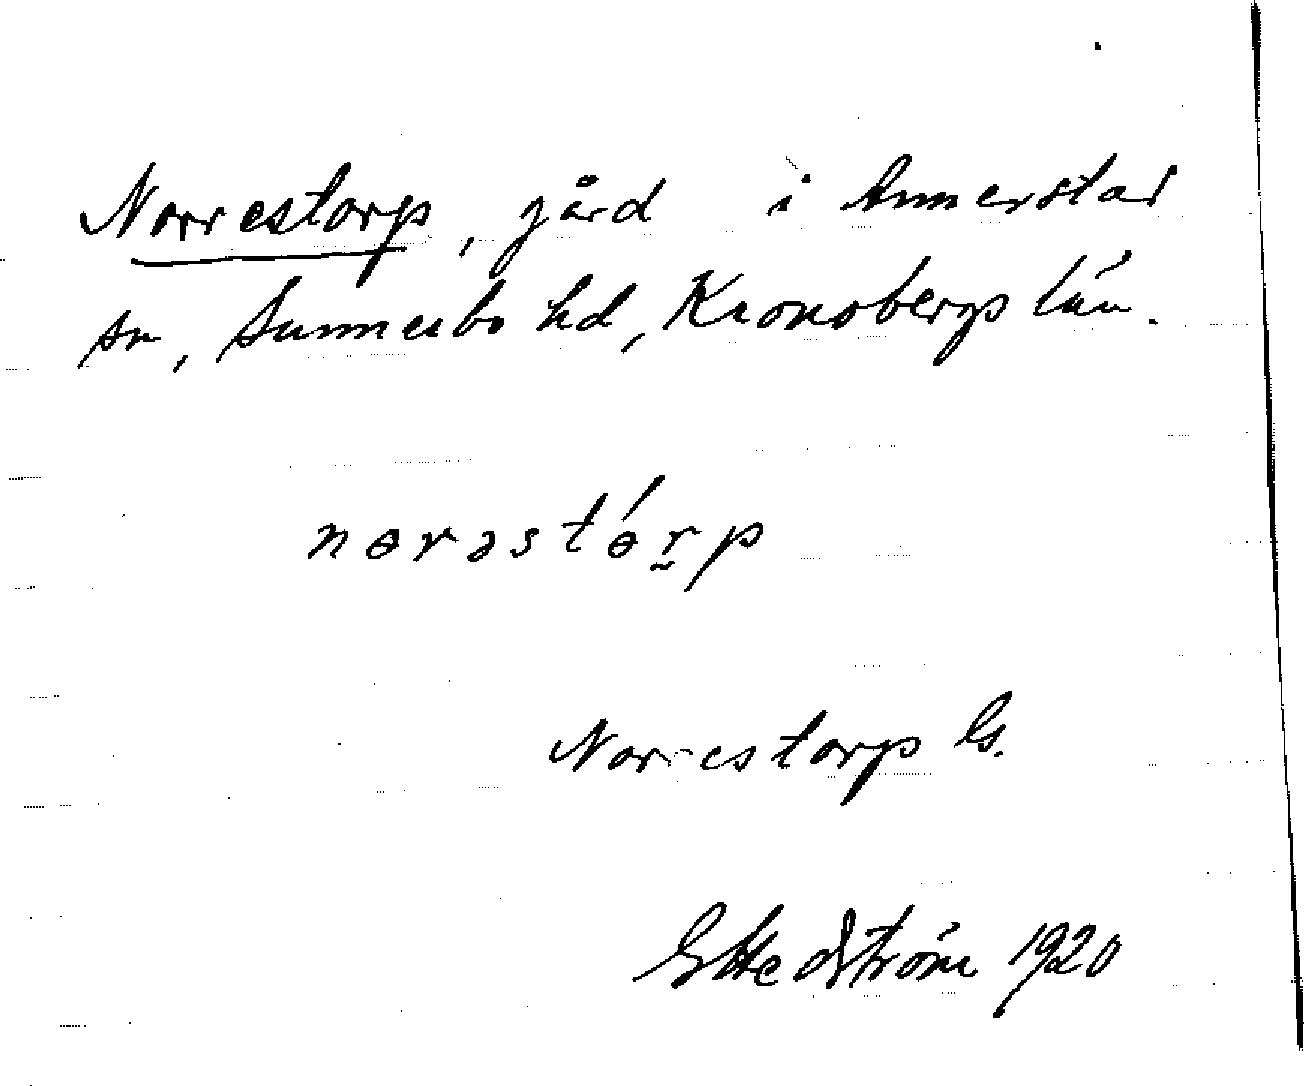 Norrestorp, gård i Annerstad
sn, Sunnerbo hd, Kronobergs län.
nɵrəstɵ́r̰p
Norrestorp G.
G Hedström 1920